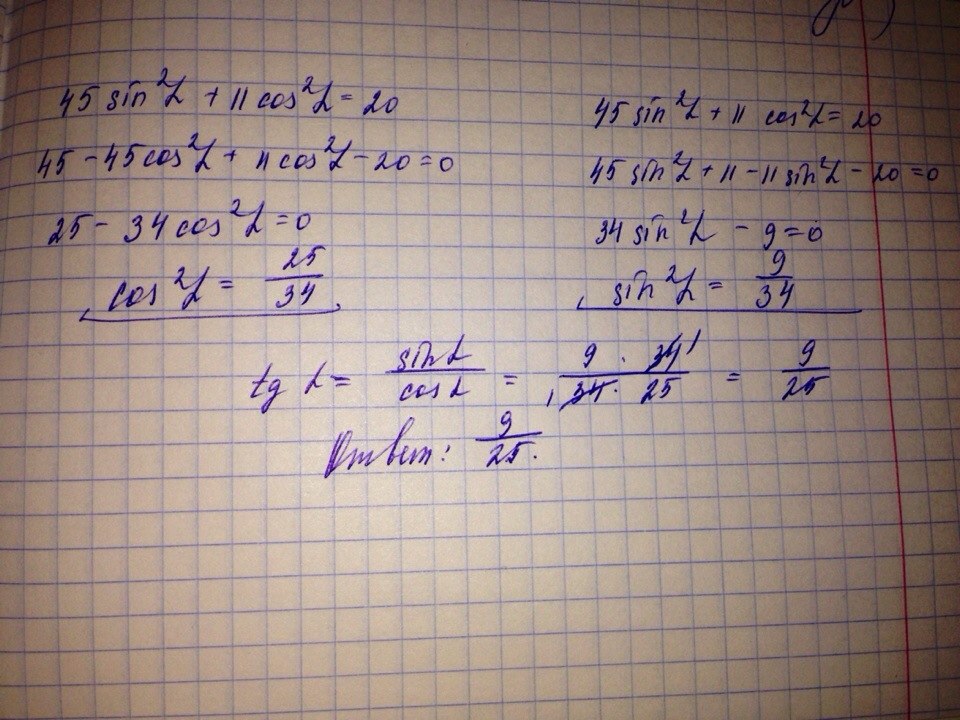 45 sin²α + 11 cos²α = 20
45 - 45cos²α + 11cos²α - 20 = 0
25 - 34 cos²α = 0
cos²α = 25/34
45 sin²α + 11 cos²α = 20
45 sin²α + 11 - 11 sin²α - 20 = 0
34 sin²α - 9 = 0
sin²α = 9/34
tg α = sin α/cos α = 9 · 34 1/1 34 · 25 = 9/25
Ответ: 9/25.